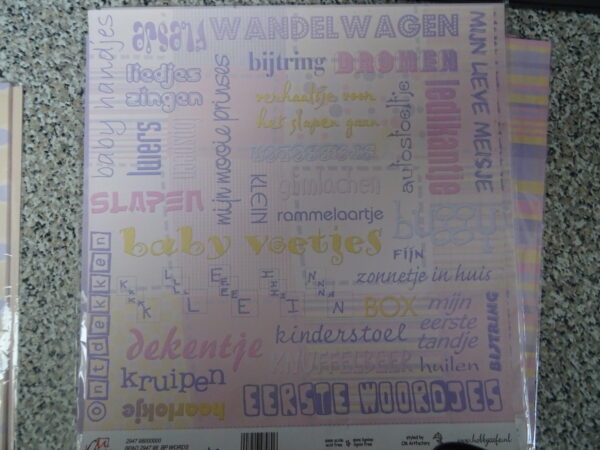 baby handjes
flesje
WANDELWAGEN
MIJN LIEVE MEISJE
bijtring
DROMEN
liedjes
zingen
mijn mooie prinses
verhaaltje voor
het slapen gaan
autostoeltje
ledikantje
luiers
KLEIN
glimlachen
SLAPEN
rammelaartje
baby voetjes
FIJN
Ontdekken
KLEIN
zonnetje in huis
BOX
mijn
eerste
tandje
BIJTRING
dekentje
kinderstoel
KNUFFELBEER
huilen
kruipen
heerlijke
EERSTE WOORDJES